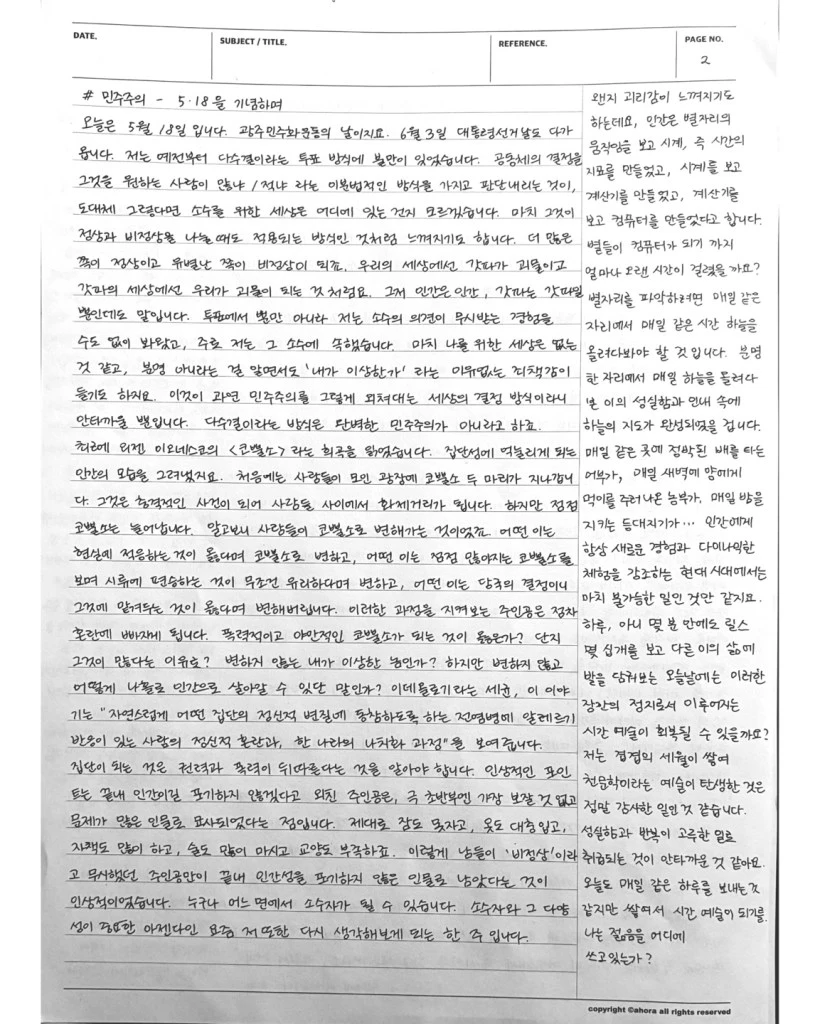 DATE.
SUBJECT / TITLE.
REFERENCE.
PAGE NO.
2
# 민주주의 - 5·18을 기념하며
오늘은 5월 18일 입니다. 광주민주화운동의 날이지요. 6월 3일 대통령선거날도 다가
옵니다. 저는 예전부터 다수결이라는 투표 방식에 불만이 있었습니다. 공동체의 결정을
그것을 원하는 사람이 많냐 / 적냐 라는 이분법적인 방식을 가지고 판단내리는 것이,
도대체 그렇다면 소수를 위한 세상은 어디에 있는 건지 모르겠습니다. 마치 그것이
정상과 비정상을 나눌 때도 적용되는 방식인 것처럼 느껴지기도 합니다. 더 많은
쪽이 정상이고 유별난 쪽이 비정상이 되죠. 우리의 세상에선 갓파가 괴물이고
갓파의 세상에선 우리가 괴물이 되는 것 처럼요. 그저 인간은 인간, 갓파는 갓파일
뿐인데도 말입니다. 투표에서 뿐만 아니라 저는 소수의 의견이 무시받는 경험을
수도 없이 봐왔고, 주로 저는 그 소수에 속했습니다. 마치 나를 위한 세상은 없는
것 같고, 분명 아니라는 걸 알면서도 '내가 이상한가' 라는 이유없는 죄책감이
들기도 하지요. 이것이 과연 민주주의를 그렇게 외쳐대는 세상의 결정 방식이라니
안타까울 뿐입니다. 다수결이라는 방식은 완벽한 민주주의가 아니라고 하죠.
최근에 외젠 이오네스코의 <코뿔소> 라는 희곡을 읽었습니다. 집단성에 억눌리게 되는
인간의 모습을 그려냈지요. 처음에는 사람들이 모인 광장에 코뿔소 두 마리가 지나갑니
다. 그것은 충격적인 사건이 되어 사람들 사이에서 화제거리가 됩니다. 하지만 점점
코뿔소는 늘어납니다. 알고보니 사람들이 코뿔소로 변해가는 것이었죠. 어떤 이는
현실에 적응하는 것이 옳다며 코뿔소로 변하고, 어떤 이는 점점 많아지는 코뿔소를
보며 시류에 편승하는 것이 무조건 유리하다며 변하고, 어떤 이는 당국의 결정이니
그것에 맡겨두는 것이 옳다며 변해버립니다. 이러한 과정을 지켜보는 주인공은 점차
혼란에 빠지게 됩니다. 폭력적이고 야만적인 코뿔소가 되는 것이 옳은가? 단지
그것이 많다는 이유로? 변하지 않는 내가 이상한 놈인가? 하지만 변하지 않고
어떻게 나홀로 인간으로 살아갈 수 있단 말인가? 이데올로기라는 세균, 이 이야
기는 "자연스럽게 어떤 집단의 정신적 변질에 동참하도록 하는 전염병에 알레르기
반응이 있는 사람의 정신적 혼란과, 한 나라의 나치화 과정"을 보여줍니다.
집단이 되는 것은 권력과 폭력이 뒤따른다는 것을 알아야 합니다. 인상적인 포인
트는 끝내 인간이길 포기하지 않겠다고 외친 주인공은, 극 초반부엔 가장 보잘 것 없고
문제가 많은 인물로 묘사되었다는 점입니다. 제대로 잠도 못자고, 옷도 대충 입고,
자책도 많이 하고, 술도 많이 마시고 교양도 부족하죠. 이렇게 남들이 '비정상'이라
고 무시했던 주인공만이 끝내 인간성을 포기하지 않은 인물로 남았다는 것이
인상적이었습니다. 누구나 어느 면에서 소수자가 될 수 있습니다. 소수자와 그 다양
성이 중요한 아젠다인 요즘 저 또한 다시 생각해보게 되는 한 주 입니다.
왠지 괴리감이 느껴지기도
하는데요, 인간은 별자리의
움직임을 보고 시계, 즉 시간의
지표를 만들었고, 시계를 보고
계산기를 만들었고, 계산기를
보고 컴퓨터를 만들었다고 합니다.
별들이 컴퓨터가 되기 까지
얼마나 오랜 시간이 걸렸을까요?
별자리를 파악하려면 매일 같은
자리에서 매일 같은 시간 하늘을
올려다봐야 할 것 입니다. 분명
한 자리에서 매일 하늘을 올려다
본 이의 성실함과 인내 속에
하늘의 지도가 완성되었을 겁니다.
매일 같은 곳에 정박된 배를 타는
어부가, 매일 새벽에 양에게
먹이를 주러 나온 농부가, 매일 밤을
지키는 등대지기가... 인간에게
항상 새로운 경험과 다이나믹한
체험을 강조하는 현대 시대에서는
마치 불가능한 일인 것만 같지요.
하루, 아니 몇 분 만에도 릴스
몇 십개를 보고 다른 이의 삶에
발을 담궈보는 오늘날에는 이러한
장칸의 정지로서 이루어지는
시간 예술이 회복될 수 있을까요?
저는 겹겹의 세월이 쌓여
천문학이라는 예술이 탄생한 것은
정말 감사한 일인 것 같습니다.
성실함과 반복이 고루한 일로
취급되는 것이 안타까운 것 같아요.
오늘도 매일 같은 하루를 보내는 것
같지만 쌓여서 시간 예술이 되기를.
나는 젊음을 어디에
쓰고있는가?
copyright ©ahora all rights reserved